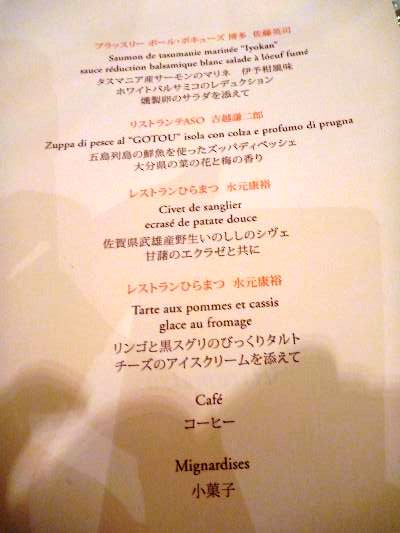 ブラッスリー ポール・ボキューズ 博多 佐藤英司
Saumon de tasumanie marinée "Iyokan"
sauce réduction balsamique blanc salade à lóeuf fumé
タスマニア産サーモンのマリネ 伊予柑風味
ホワイトバルサミコのレデュクション
燻製卵のサラダを添えて
リストランテASO 吉越謙二郎
Zuppa di pesce al "GOTOU" isola con colza e profumo di prugna
五島列島の鮮魚を使ったズッパディペッシェ
大分県の菜の花と梅の香り
レストランひらまつ 水元康裕
Civet de sanglier
ecrasé de patate douce
佐賀県武雄産野生いのししのシヴェ
甘藷のエクラゼと共に
レストランひらまつ 水元康裕
Tarte aux pommes et cassis
glace au fromage
リンゴと黒スグリのびっくりタルト
チーズのアイスクリームを添えて
Café
コーヒー
Mignardises
小菓子